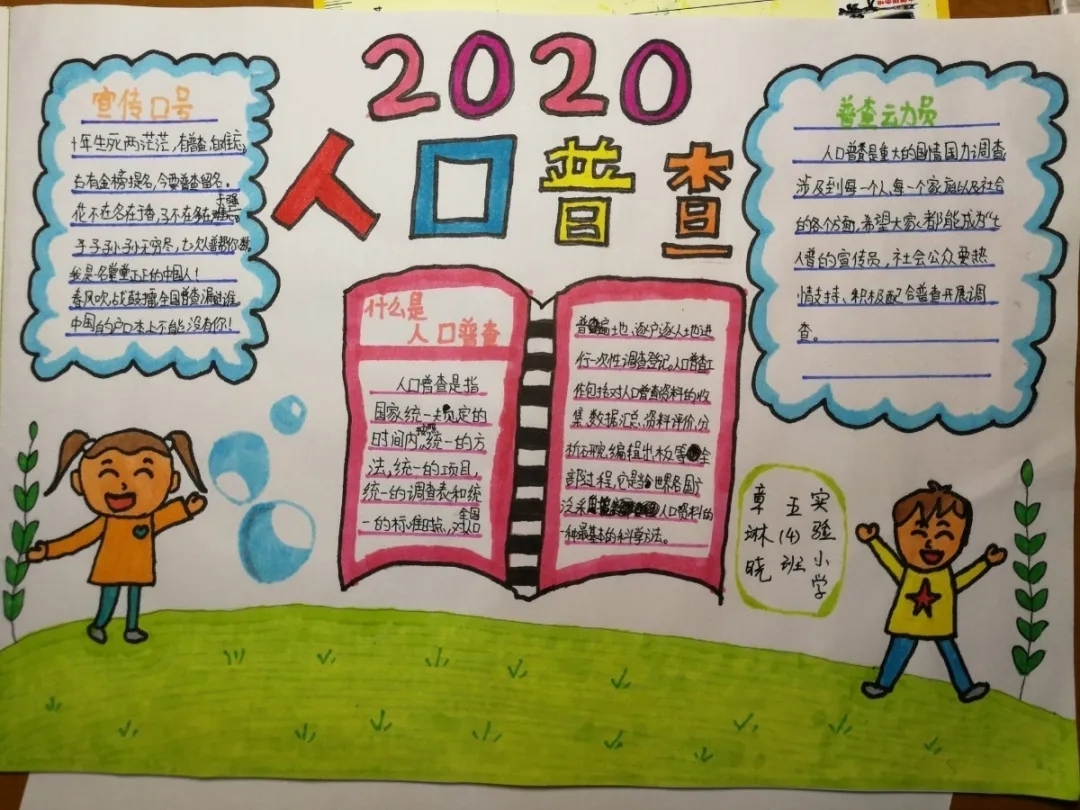 2020
人口普查
宣传口号
十年生死两茫茫,有普查,自难忘,
古有金榜提名,今要普查留名。
花不在名在香,
子子孙孙无穷尽,七次人普帮你数。
我是名堂堂正正的中国人!
春风吹,战鼓擂,全国普查漏过谁
中国的户口本上不能没有你!
什么是
人口普查
人口普查是指
国家统一规定的
时间内,统一的方
法,统一的项目,
统一的调查表和统
一的标准时点,对全国人口
普遍地、逐户逐人地进
行一次性调查登记。人口普查工
作包括对人口普查资料的收
集、数据汇总、资料评价、分
析研究、编辑出板等全
部过程,它是当世界各国广
泛采人口资料的
一种最基本的科学方法。
普查云力员
人口普查是重大的国情国力调查,
涉及到每一个人、每一个家庭以及社会
的各个方面,希望大家都能成为“七
人普的宣传员,社会公众要热
情支持、积极配合普查开展调
查。
实验小学
五(4)班
章琳晓